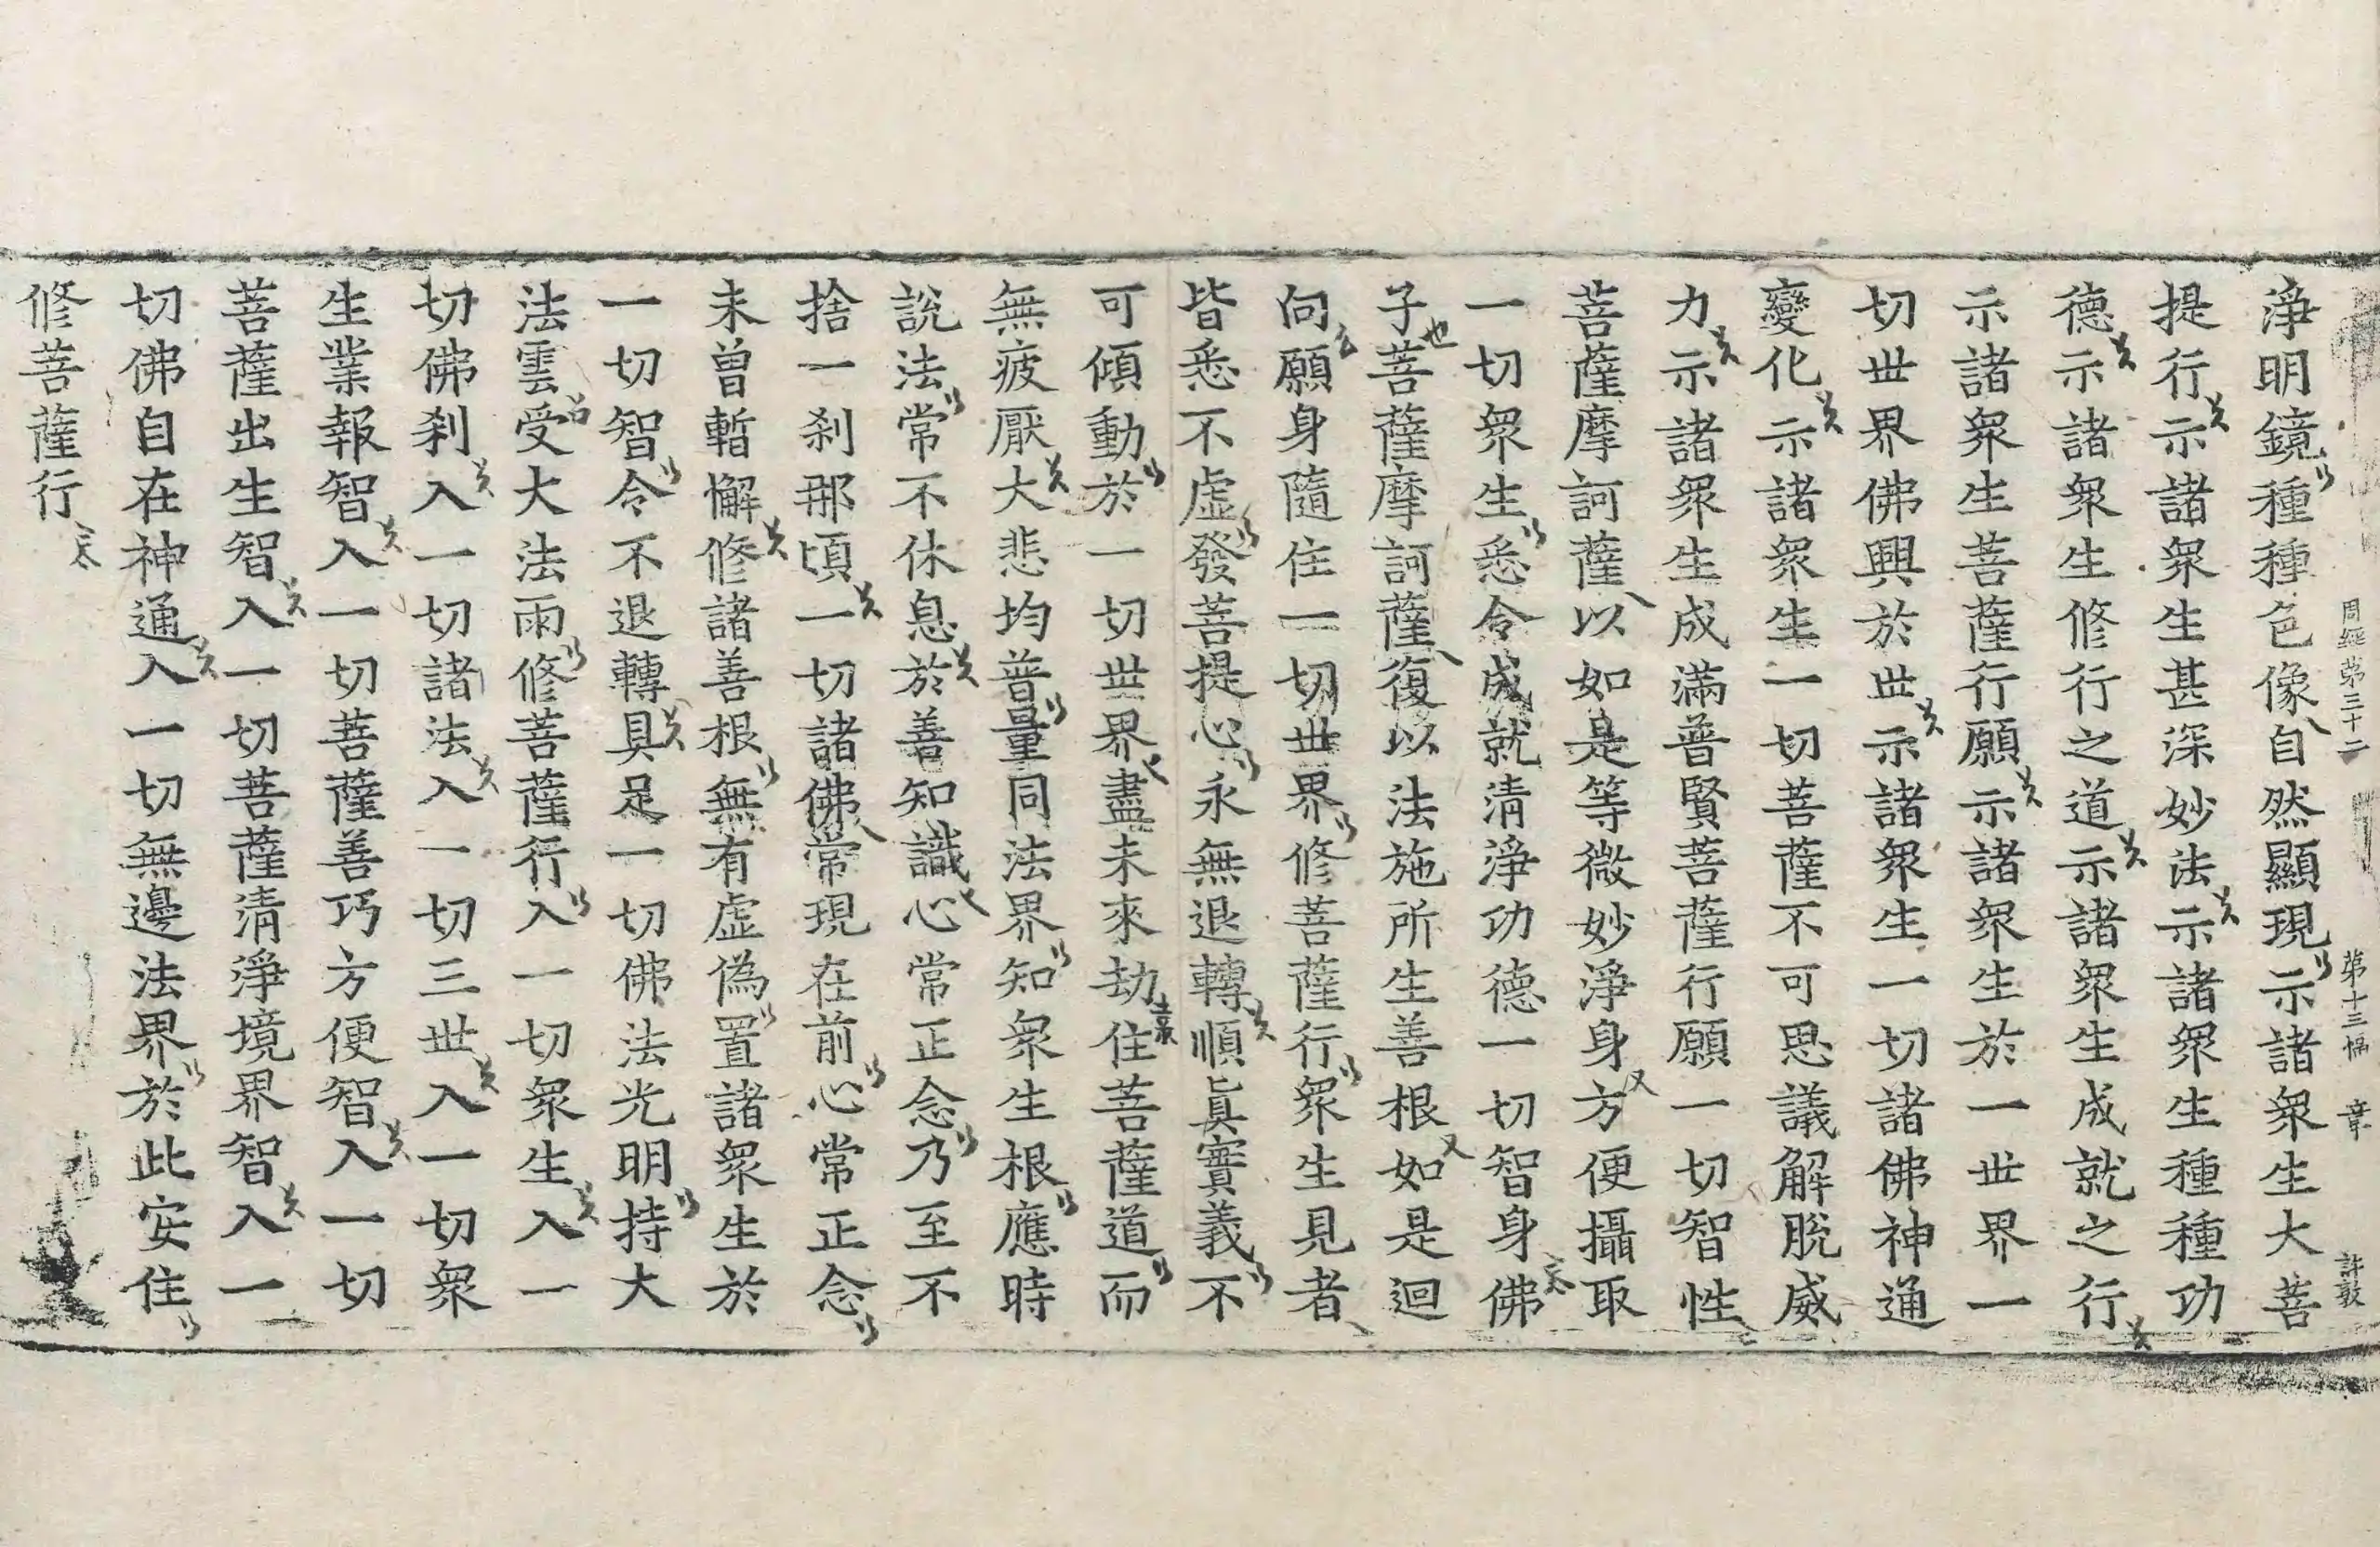 周經第三十二 第十三幅 章 許毅
淨明鏡種種色像自然顯現示諸衆生大菩
提行示諸衆生甚深妙法示諸衆生種種功
德示諸衆生修行之道示諸衆生成就之行
示諸衆生菩薩行願示諸衆生於一世界一
切世界佛興於世示諸衆生一切諸佛神通
變化示諸衆生一切菩薩不可思議解脫威
力示諸衆生成滿普賢菩薩行願一切智性
菩薩摩訶薩以如是等微妙淨身方便攝取
一切衆生悉令成就清淨功德一切智身佛
子菩薩摩訶薩復以法施所生善根如是迴
向願身隨住一切世界修菩薩行衆生見者
皆悉不虛發菩提心永無退轉順眞實義不
可傾動於一切世界盡未來劫住菩薩道而
無疲厭大悲均普量同法界知衆生根應時
說法常不休息於善知識心常正念乃至不
捨一刹那頃一切諸佛常現在前心常正念
未曾暫懈修諸善根無有虛僞置諸衆生於
一切智令不退轉具足一切佛法光明持大
法雲受大法雨修菩薩行入一切衆生入一
切佛刹入一切諸法入一切三世入一切衆
生業報智入一切菩薩善巧方便智入一切
菩薩出生智入一切菩薩清淨境界智入一
切佛自在神通入一切無邊法界於此安住
修菩薩行